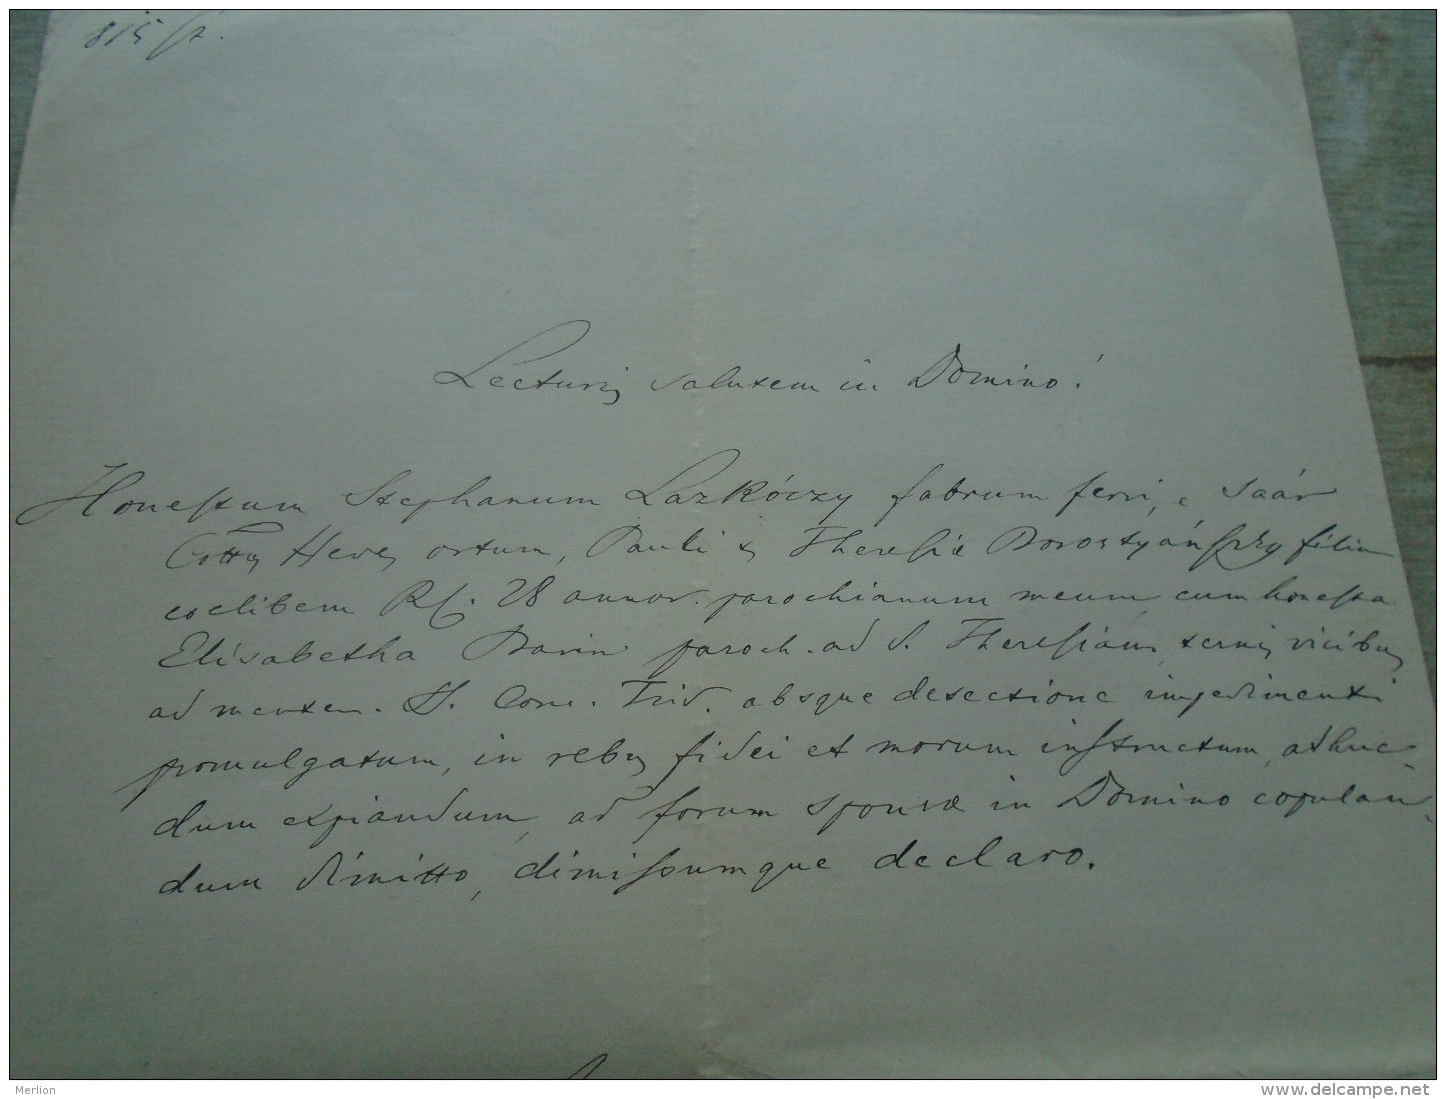 815 st.
Lecturis salutem in Domino!
Honestum Stephanum Lazkóczy fabrum ferri, e Saár
Cottus Heves ortum, Pauli & Theresiæ Borostyánszky filium
coelibem Rf. 28 annor. parochianum meum, cum honesta
Elisabetha Bavin paroch. ad S. Theresiam, ternis vicibus
ad mentem. S. Conc. Trid. absque detectione impedimenti
promulgatum, in rebus fidei et morum instructum, adhuc-
dum expiandum, ad forum sponsæ in Domino copulan-
dum dimitto, dimissumque declaro.
Merlion
www.delcampe.net